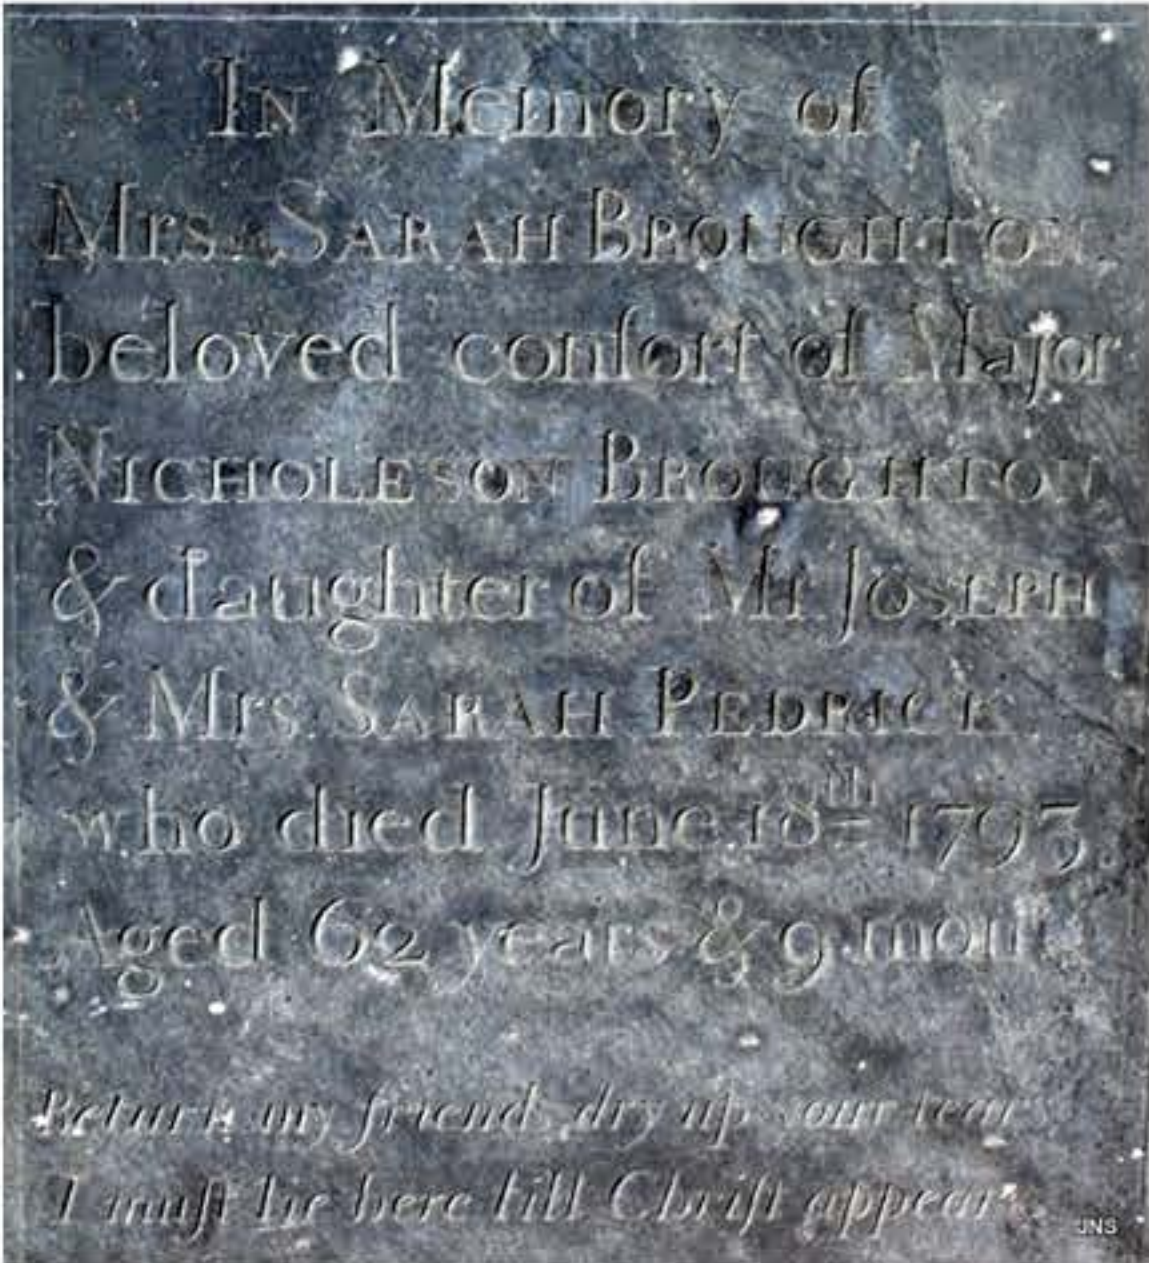 IN Memory of
Mrs. SARAH BROUGHTON,
beloved conſort of Major
NICHOLESON BROUGHTON
& daughter of Mr. JOSEPH
& Mrs. SARAH PEDRICK.
who died June 18th 1793.
Aged 62 years & 9 mon
Return my friends dry up your tears
I muſt lie here till Chriſt appears
JNS